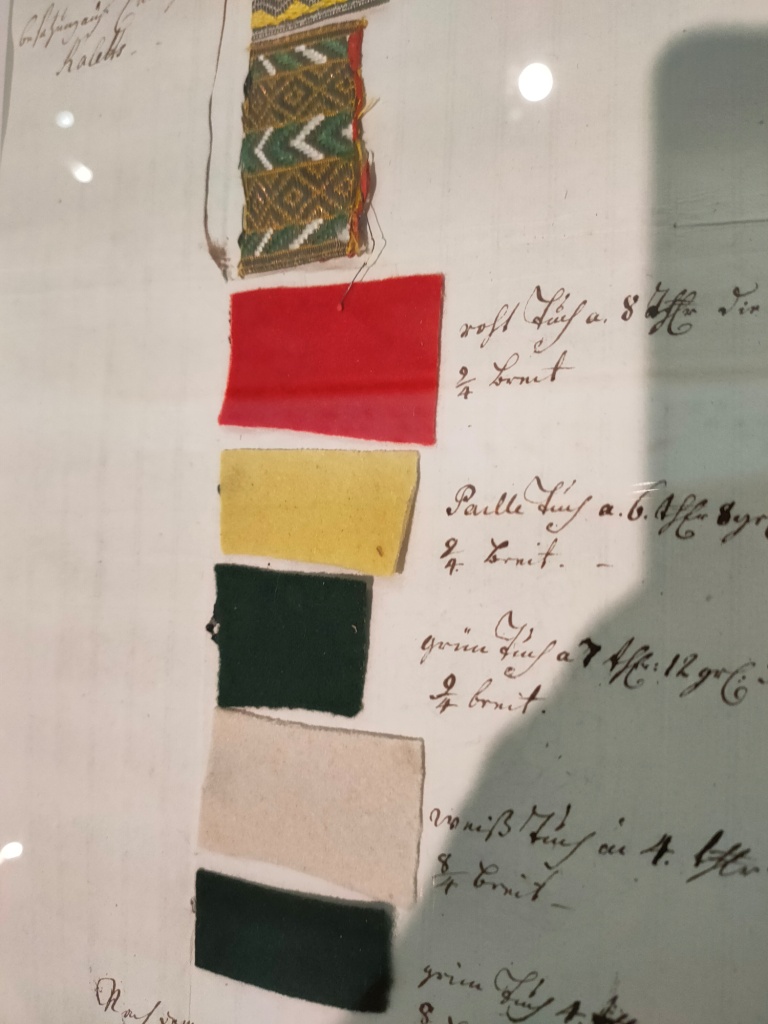 roht Tuch a. 8 thlr die
9/4 breit
Paille Tuch a. 6. thlr 8 gr
9/4 breit. –
grün Tuch a 7 thlr: 12 grl:
9/4 breit.
weiß Tuch a 4. thlr
8/4 breit –
grün Tuch 4.
8
Nach